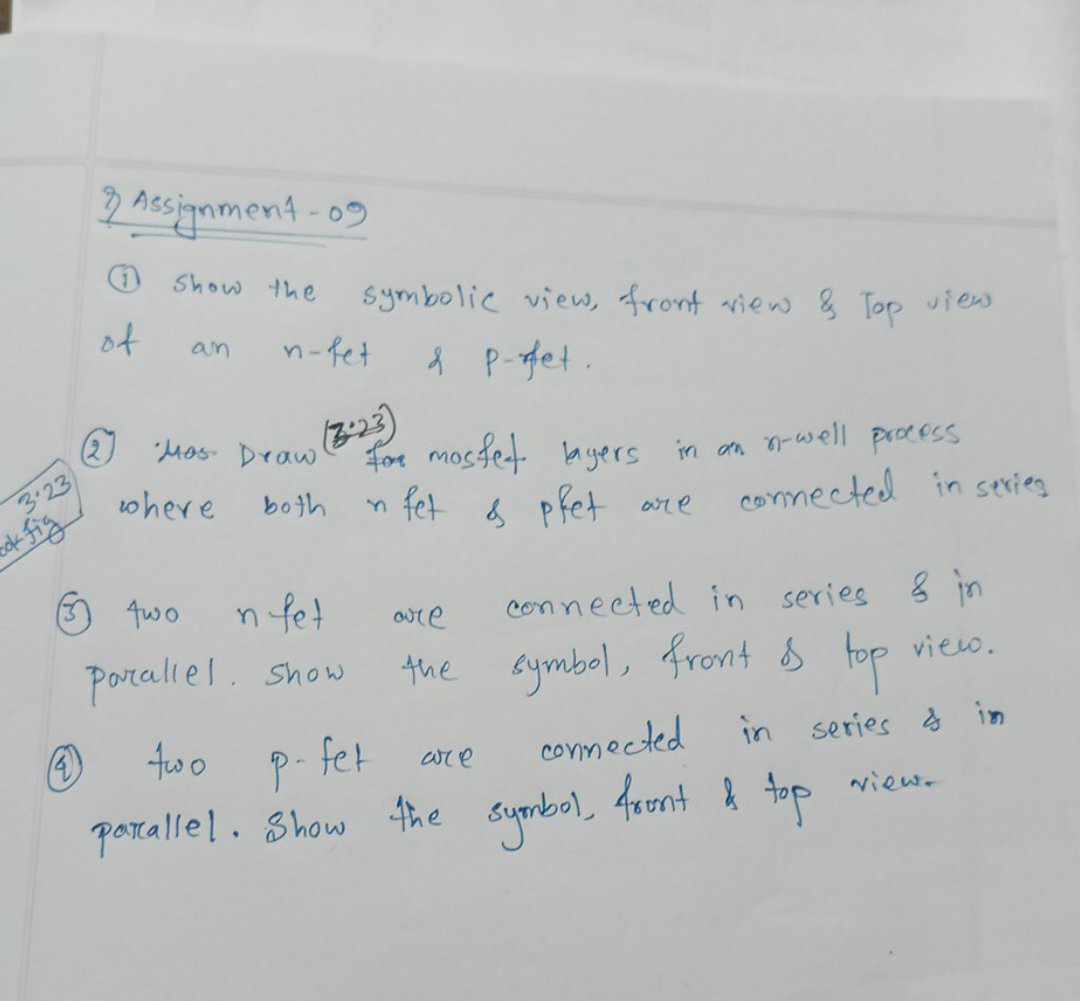 Assignment - 09
① Show the symbolic view, front view & Top view
of an n-fet & p-fet.
(3.23)
② Draw for mosfet layers in an n-well process
3.23
where both n fet & pfet are connected in series
fig
③ two n fet are connected in series & in
parallel. show the symbol, front & top view.
④ two p-fet are connected in series & in
parallel. Show the symbol, front & top view.